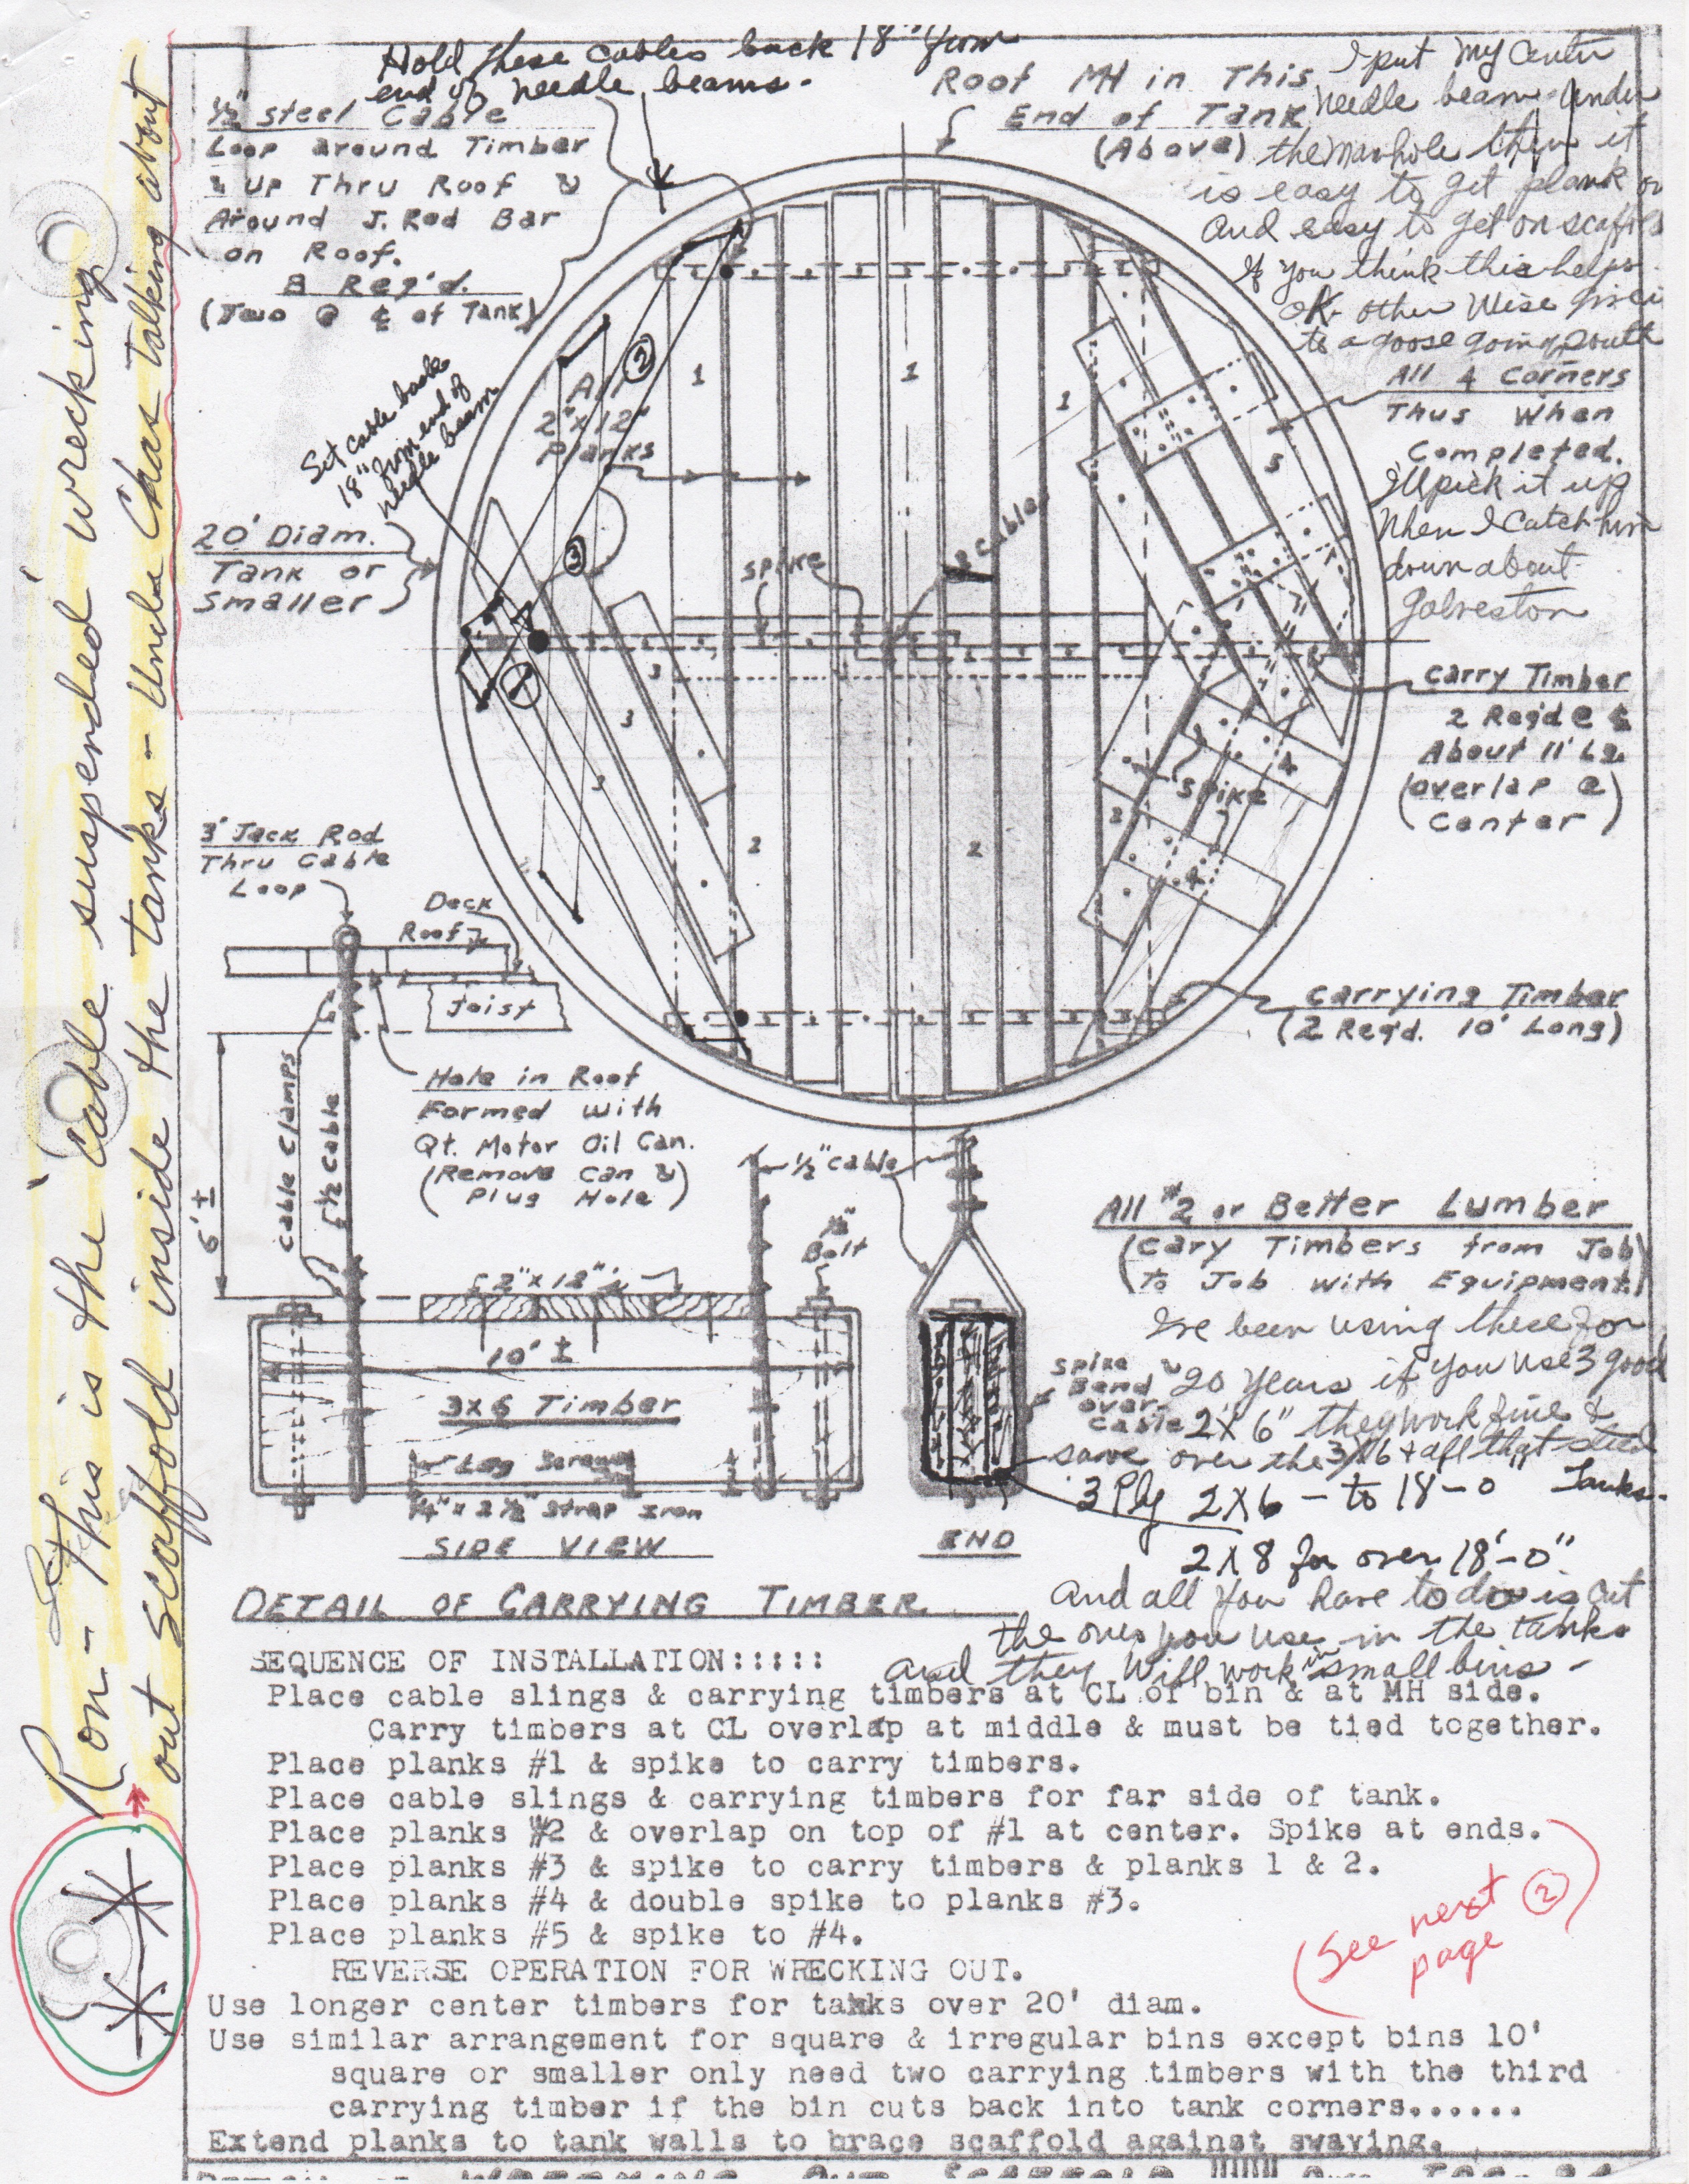 Ron - This is the "Cable suspended" wrecking
out scaffold inside the tanks - Uncle Chas talking about
Hold these cables back 18" from
end of needle beams.
1/2" Steel Cable
Loop around Timber
& Up Thru Roof &
Around J. Rod Bar
on Roof.
8 Req'd.
(Two @ ℄ of Tank)
Roof MH in This
End of Tank
(Above)
I put my center
needle beam under
the manhole then it
is easy to get plank on
and easy to get on scaffold
If you think this helps
OK other wise give it
to a goose going south
All 4 Corners
Thus When
Completed.
I'll pick it up
When I catch him
down about
Galveston
Set cable back
18" from end of
needle beam
All
2"x12"
Planks
20' Diam.
Tank or
Smaller
1
1
1
2
3
5
Spike
2 Cable
1
3
3
3
2
2
2
Spike
4
4
Carry Timber
2 Req'd @ ℄
About 11' Lg.
(Overlap @
Center)
Carrying Timber
(2 Req'd. 10' Long)
3' Jack Rod
Thru Cable
Loop
Deck
Roof
Joist
Hole in Roof
Formed with
Qt. Motor Oil Can.
(Remove Can &
Plug Hole)
6' ±
Cable Clamps
1/2 Cable
1/2" Cable
Bolt
2"x12"
10' ±
3x6 Timber
Lag Screws
1/4" x 2 1/2" Strap Iron
SIDE VIEW
END
Spike &
Bend
over
Cable
All #2 or Better Lumber
(Cary Timbers from Job
To Job with Equipment)
I've been using these for
20 years if you use 3 good
2x6" they work fine &
save over the 3x6 & all that steel
3 Ply 2x6 - to 18-0 Tanks.
2x8 for over 18'-0"
And all you have to do is cut
the ones you use in the tanks
and they will work in small bins -
DETAIL OF CARRYING TIMBER
SEQUENCE OF INSTALLATION:::::
Place cable slings & carrying timbers at CL of bin & at MH side.
Carry timbers at CL overlap at middle & must be tied together.
Place planks #1 & spike to carry timbers.
Place cable slings & carrying timbers for far side of tank.
Place planks #2 & overlap on top of #1 at center. Spike at ends.
Place planks #3 & spike to carry timbers & planks 1 & 2.
Place planks #4 & double spike to planks #3.
Place planks #5 & spike to #4.
(See next page 2)
REVERSE OPERATION FOR WRECKING OUT.
Use longer center timbers for tanks over 20' diam.
Use similar arrangement for square & irregular bins except bins 10'
square or smaller only need two carrying timbers with the third
carrying timber if the bin cuts back into tank corners......
Extend planks to tank walls to brace scaffold against swaying.